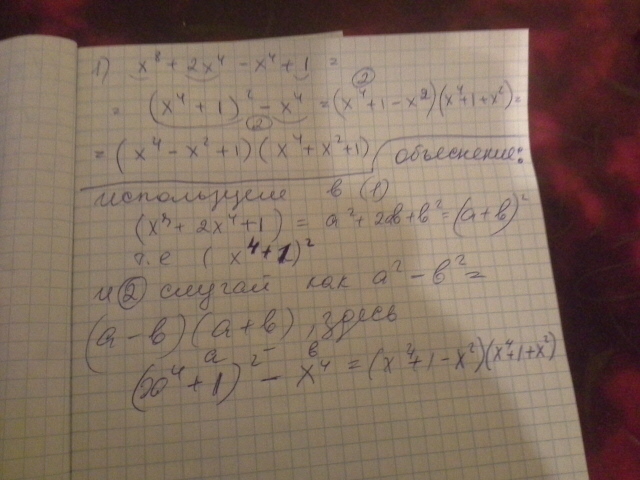 1) x⁸ + 2x⁴ - x⁴ + 1 =
= (x⁴ + 1)² - x⁴ = (x⁴+1 - x²)(x⁴+1+x²) =
②
②
= (x⁴ - x² + 1)(x⁴ + x² + 1)
объяснение:
используем в (1)
(x⁸ + 2x⁴ + 1) = a² + 2ab + b² = (a+b)²
т.е (x⁴+1)²
и ② случай как a² - b² =
(a - b)(a + b), здесь
a b
(x⁴ + 1)² - x⁴ = (x⁴+1 - x²)(x⁴+1+x²)